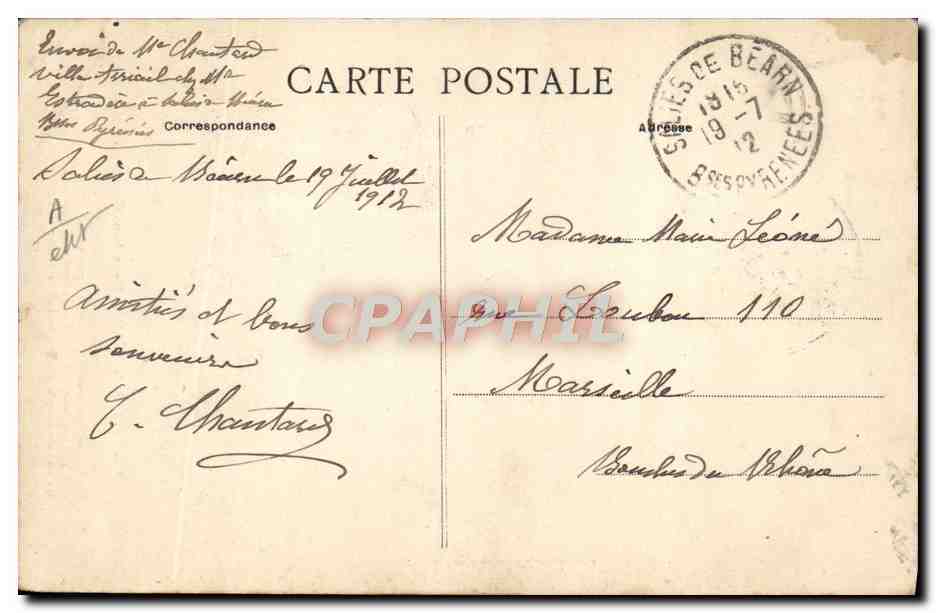 Envoi de Mr Chantard
villa chez Mr
à Salies Béarn
Bses Pyrénées
CARTE POSTALE
Correspondance
Adresse
SALIES-DE-BÉARN
1815
19-7
12
BSES PYRENEES
Salies de Béarn le 19 Juillet
1912
Amitiés et bons
souvenirs
C. Chantard
Madame Marie Léone
rue Loubon 110
Marseille
Bouches du Rhône
CPAPHIL